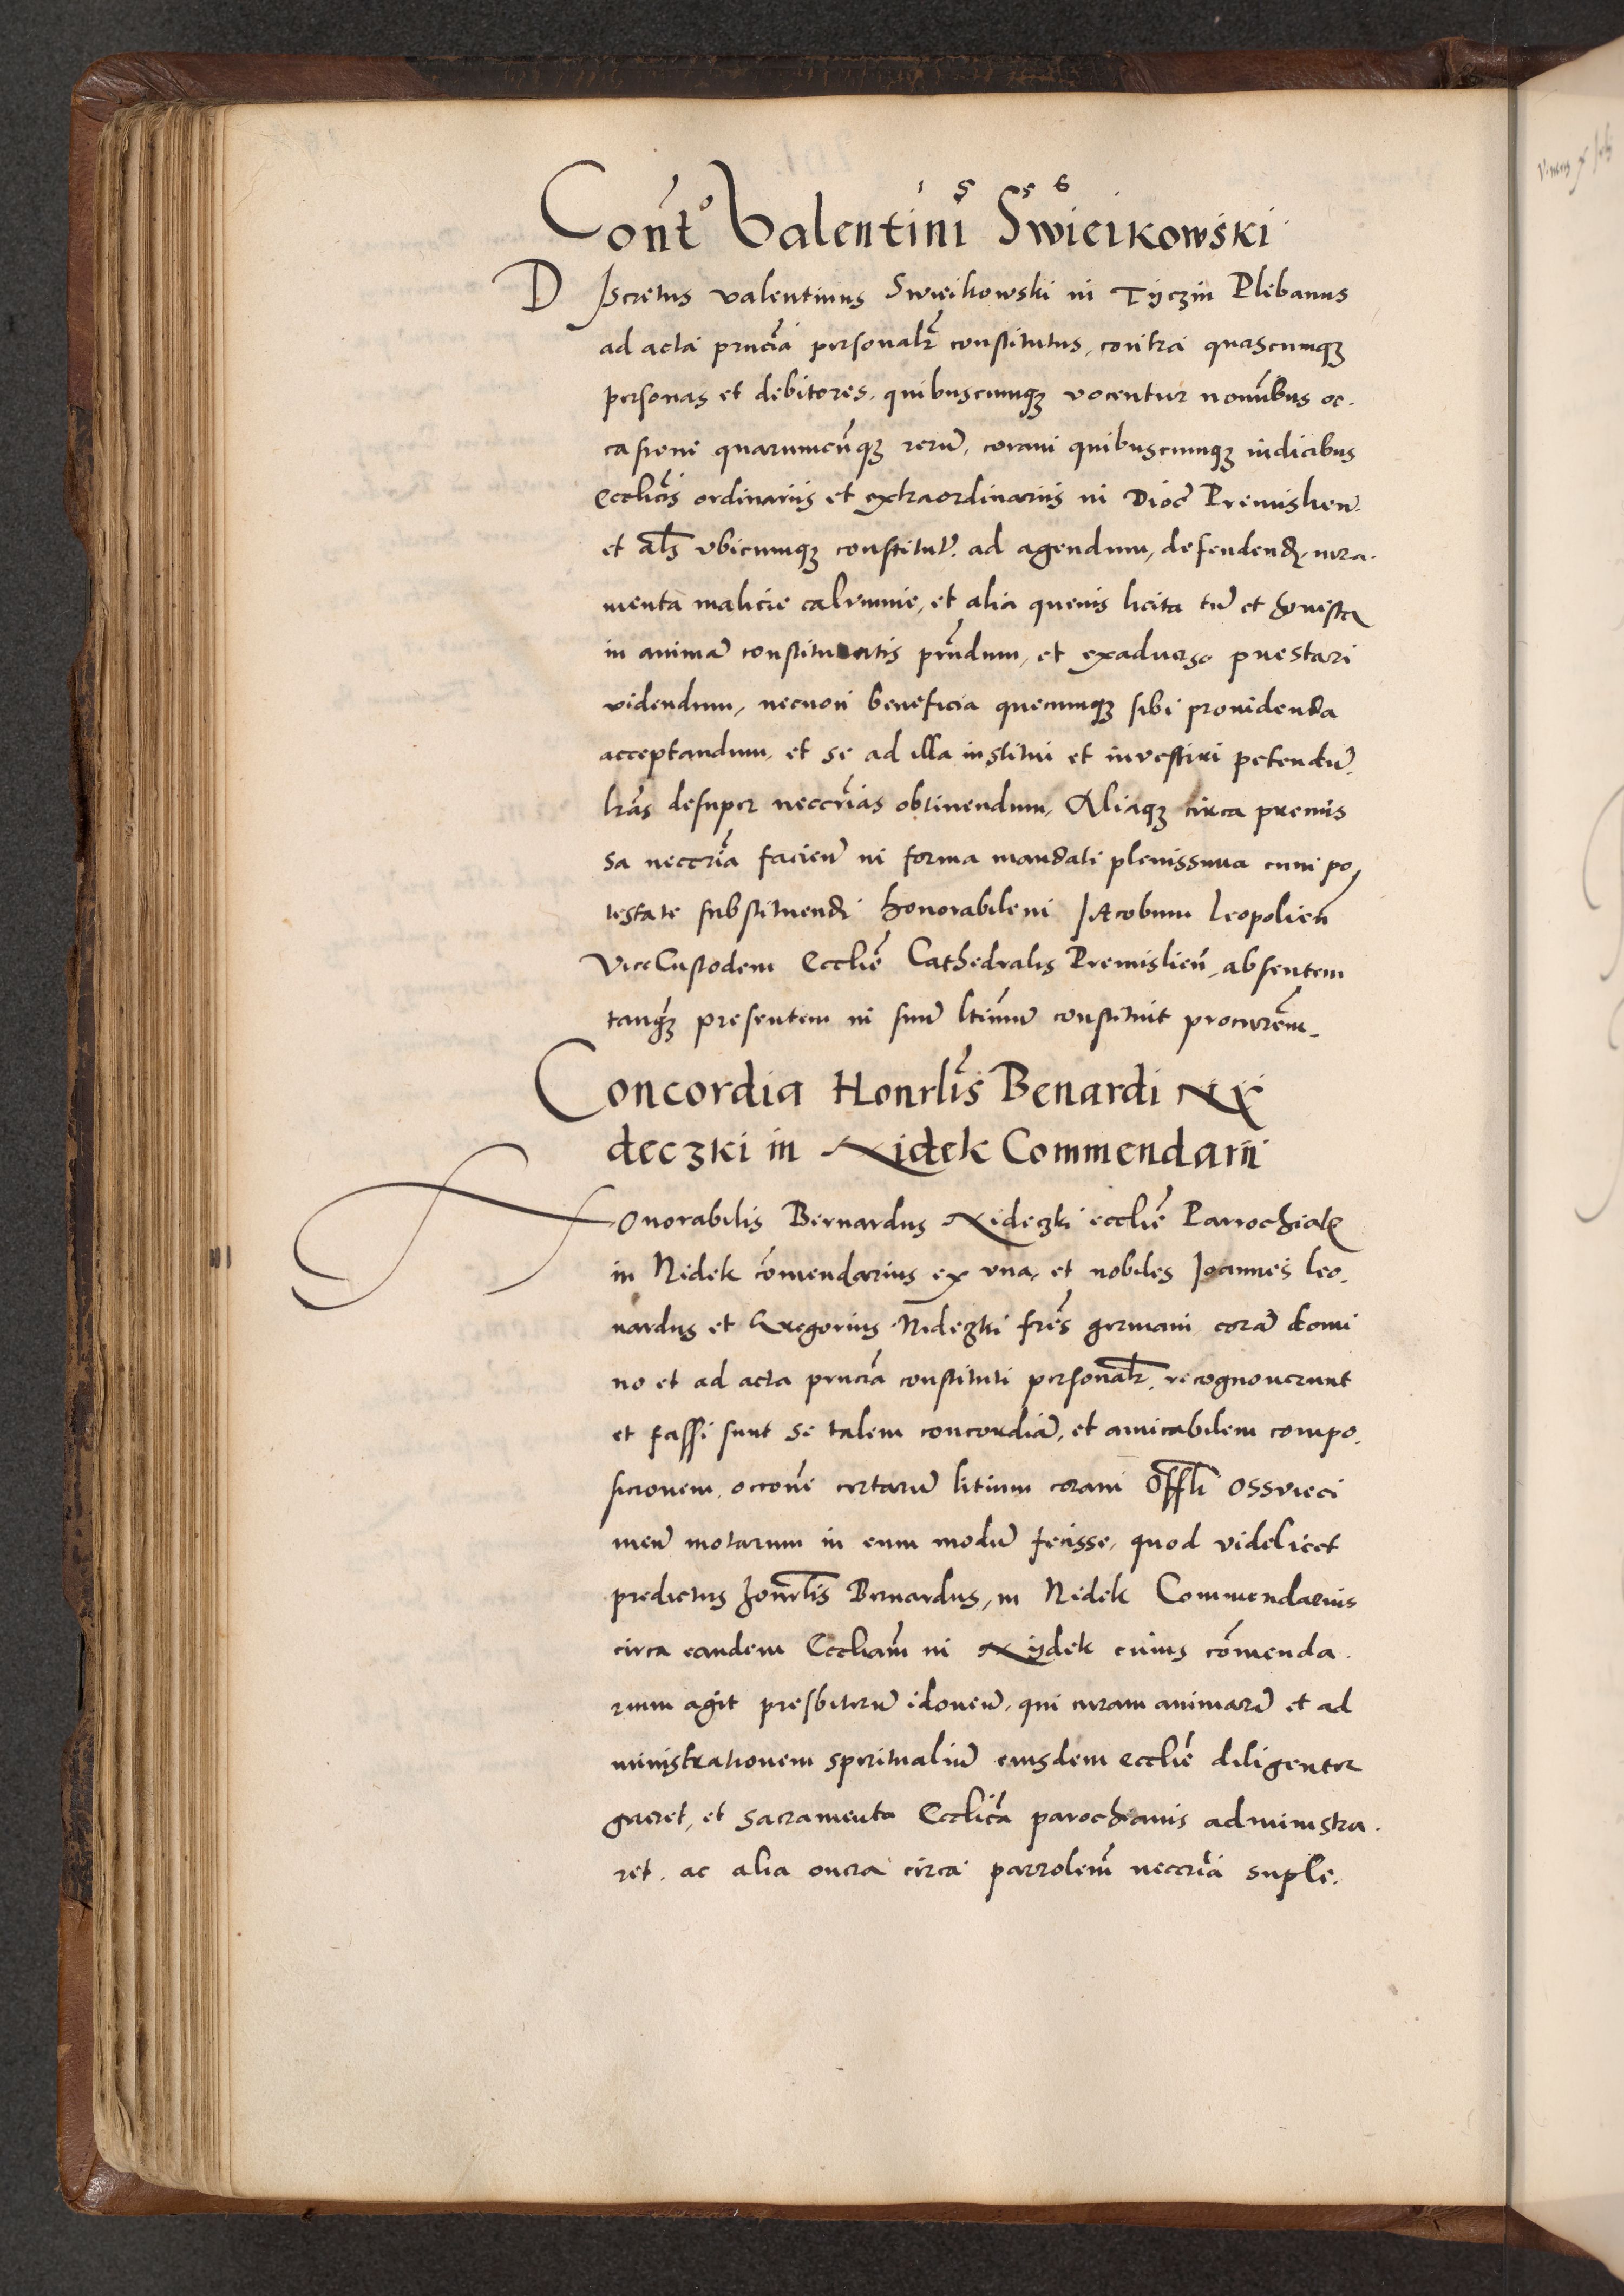 1 5 5 6
Cont̃o Valentini Swieikowski
DIscretus valentinus Swieikowski in Tijczin Plebanus
ad acta pñcia personalr̃ constitutus, contra quascumqꝫ
personas et debitores, quibuscumqꝫ vocentur nominibus oc.
casione quarumcũqꝫ rerũ, coram quibuscumqꝫ iudicibus
eccličis ordinariis et extraordinariis in Dioc̃ Premislieñ.
et al̃s vbicumqꝫ constitut̃. ad agendum, defendend, iura.
menta malicie calumnie, et alia quevis licita tñ et honesta
in animã constituentis pr̃ndum, et exaduerso prestari
videndum, necnon beneficia quecumqꝫ sibi prouidenda
acceptandum, et se ad illa institui et investiri petendũ.
lr̃as desuper neccr̃ias obtinendum, Aliaqꝫ circa premis
sa neccr̃ia facieñ in forma mandati plenissima cum po
testate substituendi honorabilem Jacobum Leopolieñ
ViceCustodem Eccliẽ Cathedralis Premislieñ, absentem
tanqꝫ presentem in suũ ltĩmũ constituit procurẽm.
Concordia Honrlĩs Benardi Ny
deczki in Nidek Commendarii
Honorabilis Bernardus Nideczki eccliẽ Parrochialis
in Nidek cõmendarius ex vna, et nobiles Joannes Leo.
nardus et Gregorius Nideczki fres̃ germani corã domi
no et ad acta pñcia constituti personalr̃. recognouerunt
et fassi sunt se talem concordiã, et amicabilem compo.
sicionem occone certarũ litium coram Offli Ossvieci
meñ motarum in eum modũ fecisse, quod videlicet
predictus honrlis Bernardus, in Nidek Commendarius
circa eandem Eccliam in Nijdek cuius cõmenda.
rium agit presbiterũ idoneũ, qui curam animarũ et ad
ministrationem spiritualiũ eiusdem eccliẽ diligenter
gereret, et sacramenta Ecclicã parochianis administra.
ret. ac alia onera circa parrolem neccriã suple.